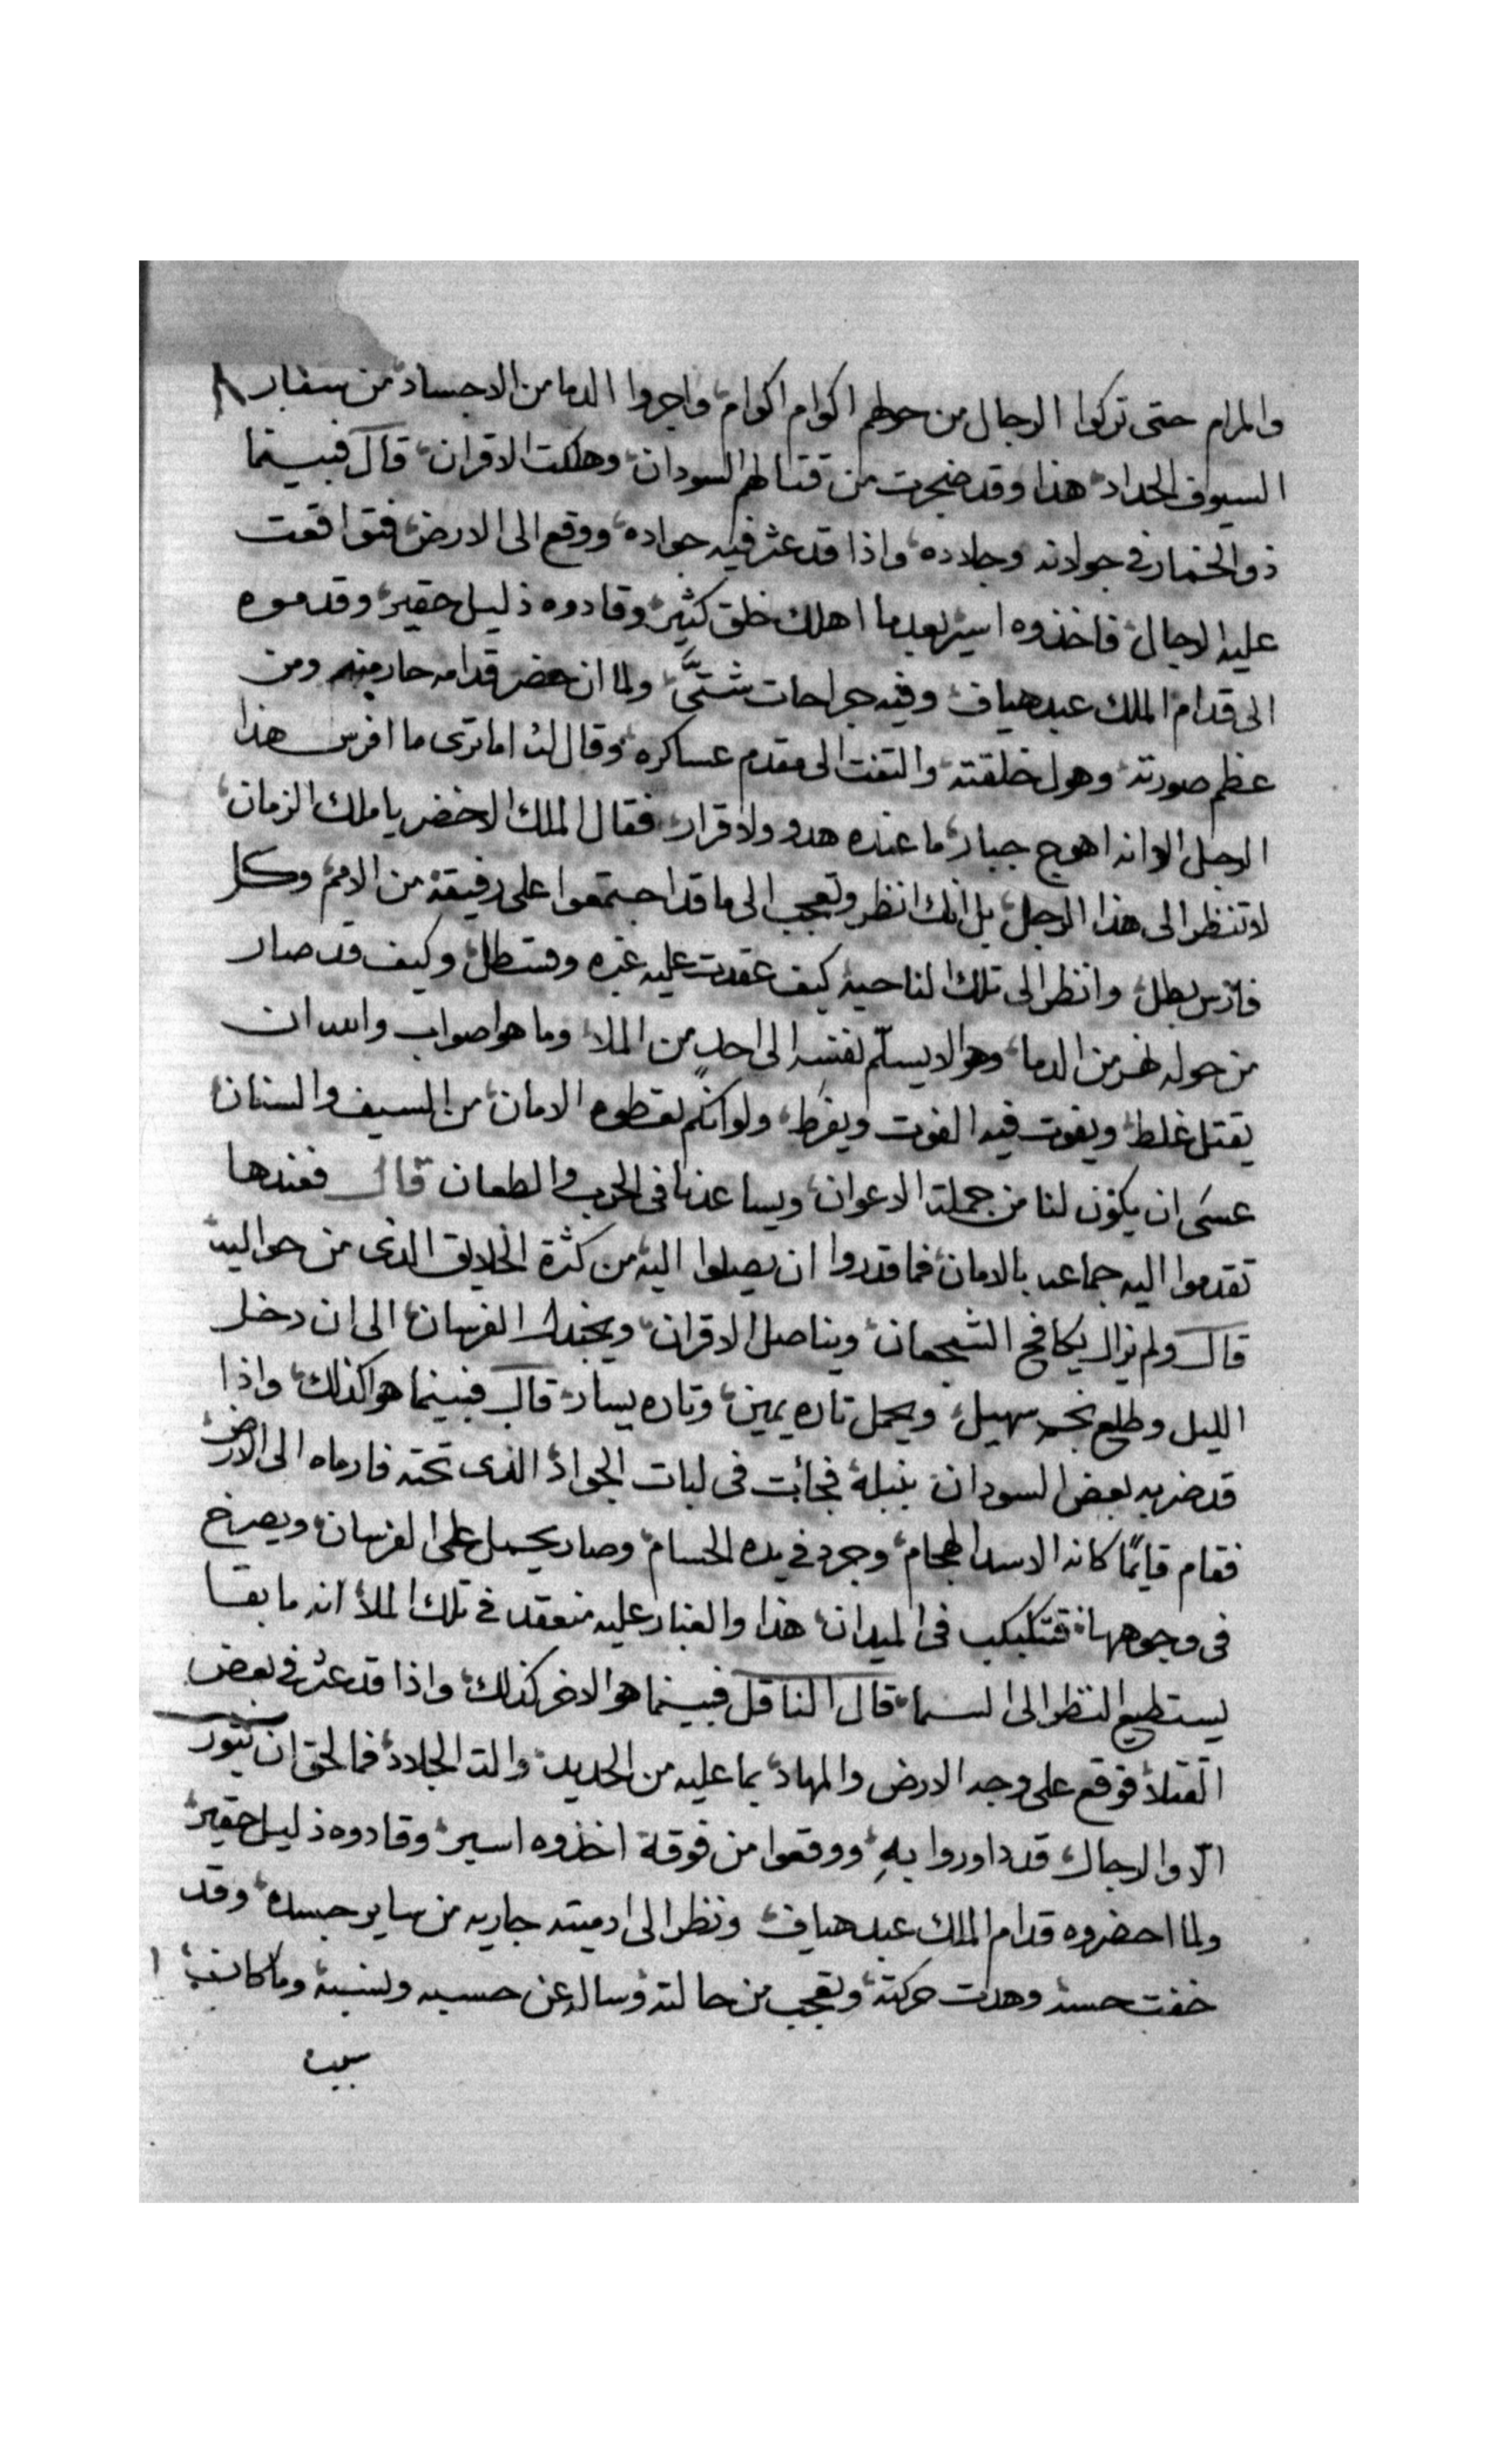 والمرام حتى تركوا الرجال من حولهم اكوام اكوام واجروا الدما من الاجساد من سفار
السيوف الحداد هذا وقد ضجرت من قتالهم السودان وهلكت الاقران قال فبينما
ذو الخمار في جولاته وجلاده واذا قد عثر فيه جواده ووقع الى الارض فتواقعت
عليه الرجال فاخذوه اسير بعدما اهلك خلق كثير وقادوه ذليل حقير وقدموه
الى قدام الملك عبد هياف وفيه جراحات شتىَّ ولما ان حضر قدامه حار منه ومن
عظم صورته وهول خلقته والتفت الى مقدم عساكره وقال له اما ترى ما افرس هذا
الرجل الا وانه اهوج جبار ما عنده هدو ولا قرار فقال الملك الاخضر يا ملك الزمان
لا تنظر الى هذا الرجل بل انك انظر وتعجب الى ما قد اجتمعوا على رفيقه من الامم وكل
فارس بطل وانظر الى تلك الناحيه كيف عقدت عليه غبره وقسطل وكيف قد صار
من حوله نهر من الدما وهو لا يسلّم نفسه الى احدٍ من الملا وما هوا صواب والله ان
يقتل غلط ويفوت فيه الفوت ويفرط ولو انكم تعطوه الامان من السيف والسنان
عسَى ان يكون لنا من جملة الاعوان ويساعدنا فى الحرب والطعان قال فعندها
تقدموا اليه جماعه بالامان فما قدروا ان يصلوا اليه من كثرة الخلايق الذى من حواليه
قال ولم يزال يكافح الشجعان ويناصل الاقران ويجندل الفرسان الى ان دخل
الليل وطلع نجم سهيل ويحمل تاره يمين وتاره يسار قال فبينما هوا كذلك واذا
قد ضربه بعض السودان بنبلة فجأت فى لبات الجواد الذى تحته فارماه الى الارض
فقام قايمًا كانه الاسد الهجام وجرد في يده الحسام وصار يحمل على الفرسان ويصرخ
فى وجوهها فتكبكب فى الميدان هذا والغبار عليه منعقد في تلك الملأ انه ما بقا
يستطيع النظر الى السما قال الناقل فبينما هو الاخر كذلك واذا قد عثر في بعض
القتلا فوقع على وجه الارض والمهاد بما عليه من الحديد والت الجلاد فما لحق ان يثور
الّا والرجال قد داوروا بهِ ووقعوا من فوقة اخذوه اسير وقادوه ذليل حقير
ولما احضروه قدام الملك عبد هياف ونظر الى ادميته جاريه من ساير جسده وقد
خفت حسه وهدت حركته وتعجب من حالته وساله عن حسبه ونسبه وما كان
سبب